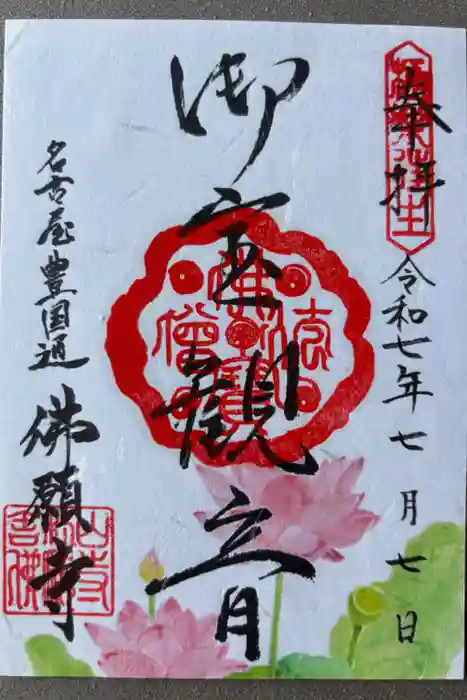 奉拝
令和七年七月七日
御宝観音
名古屋豊国通
佛願寺